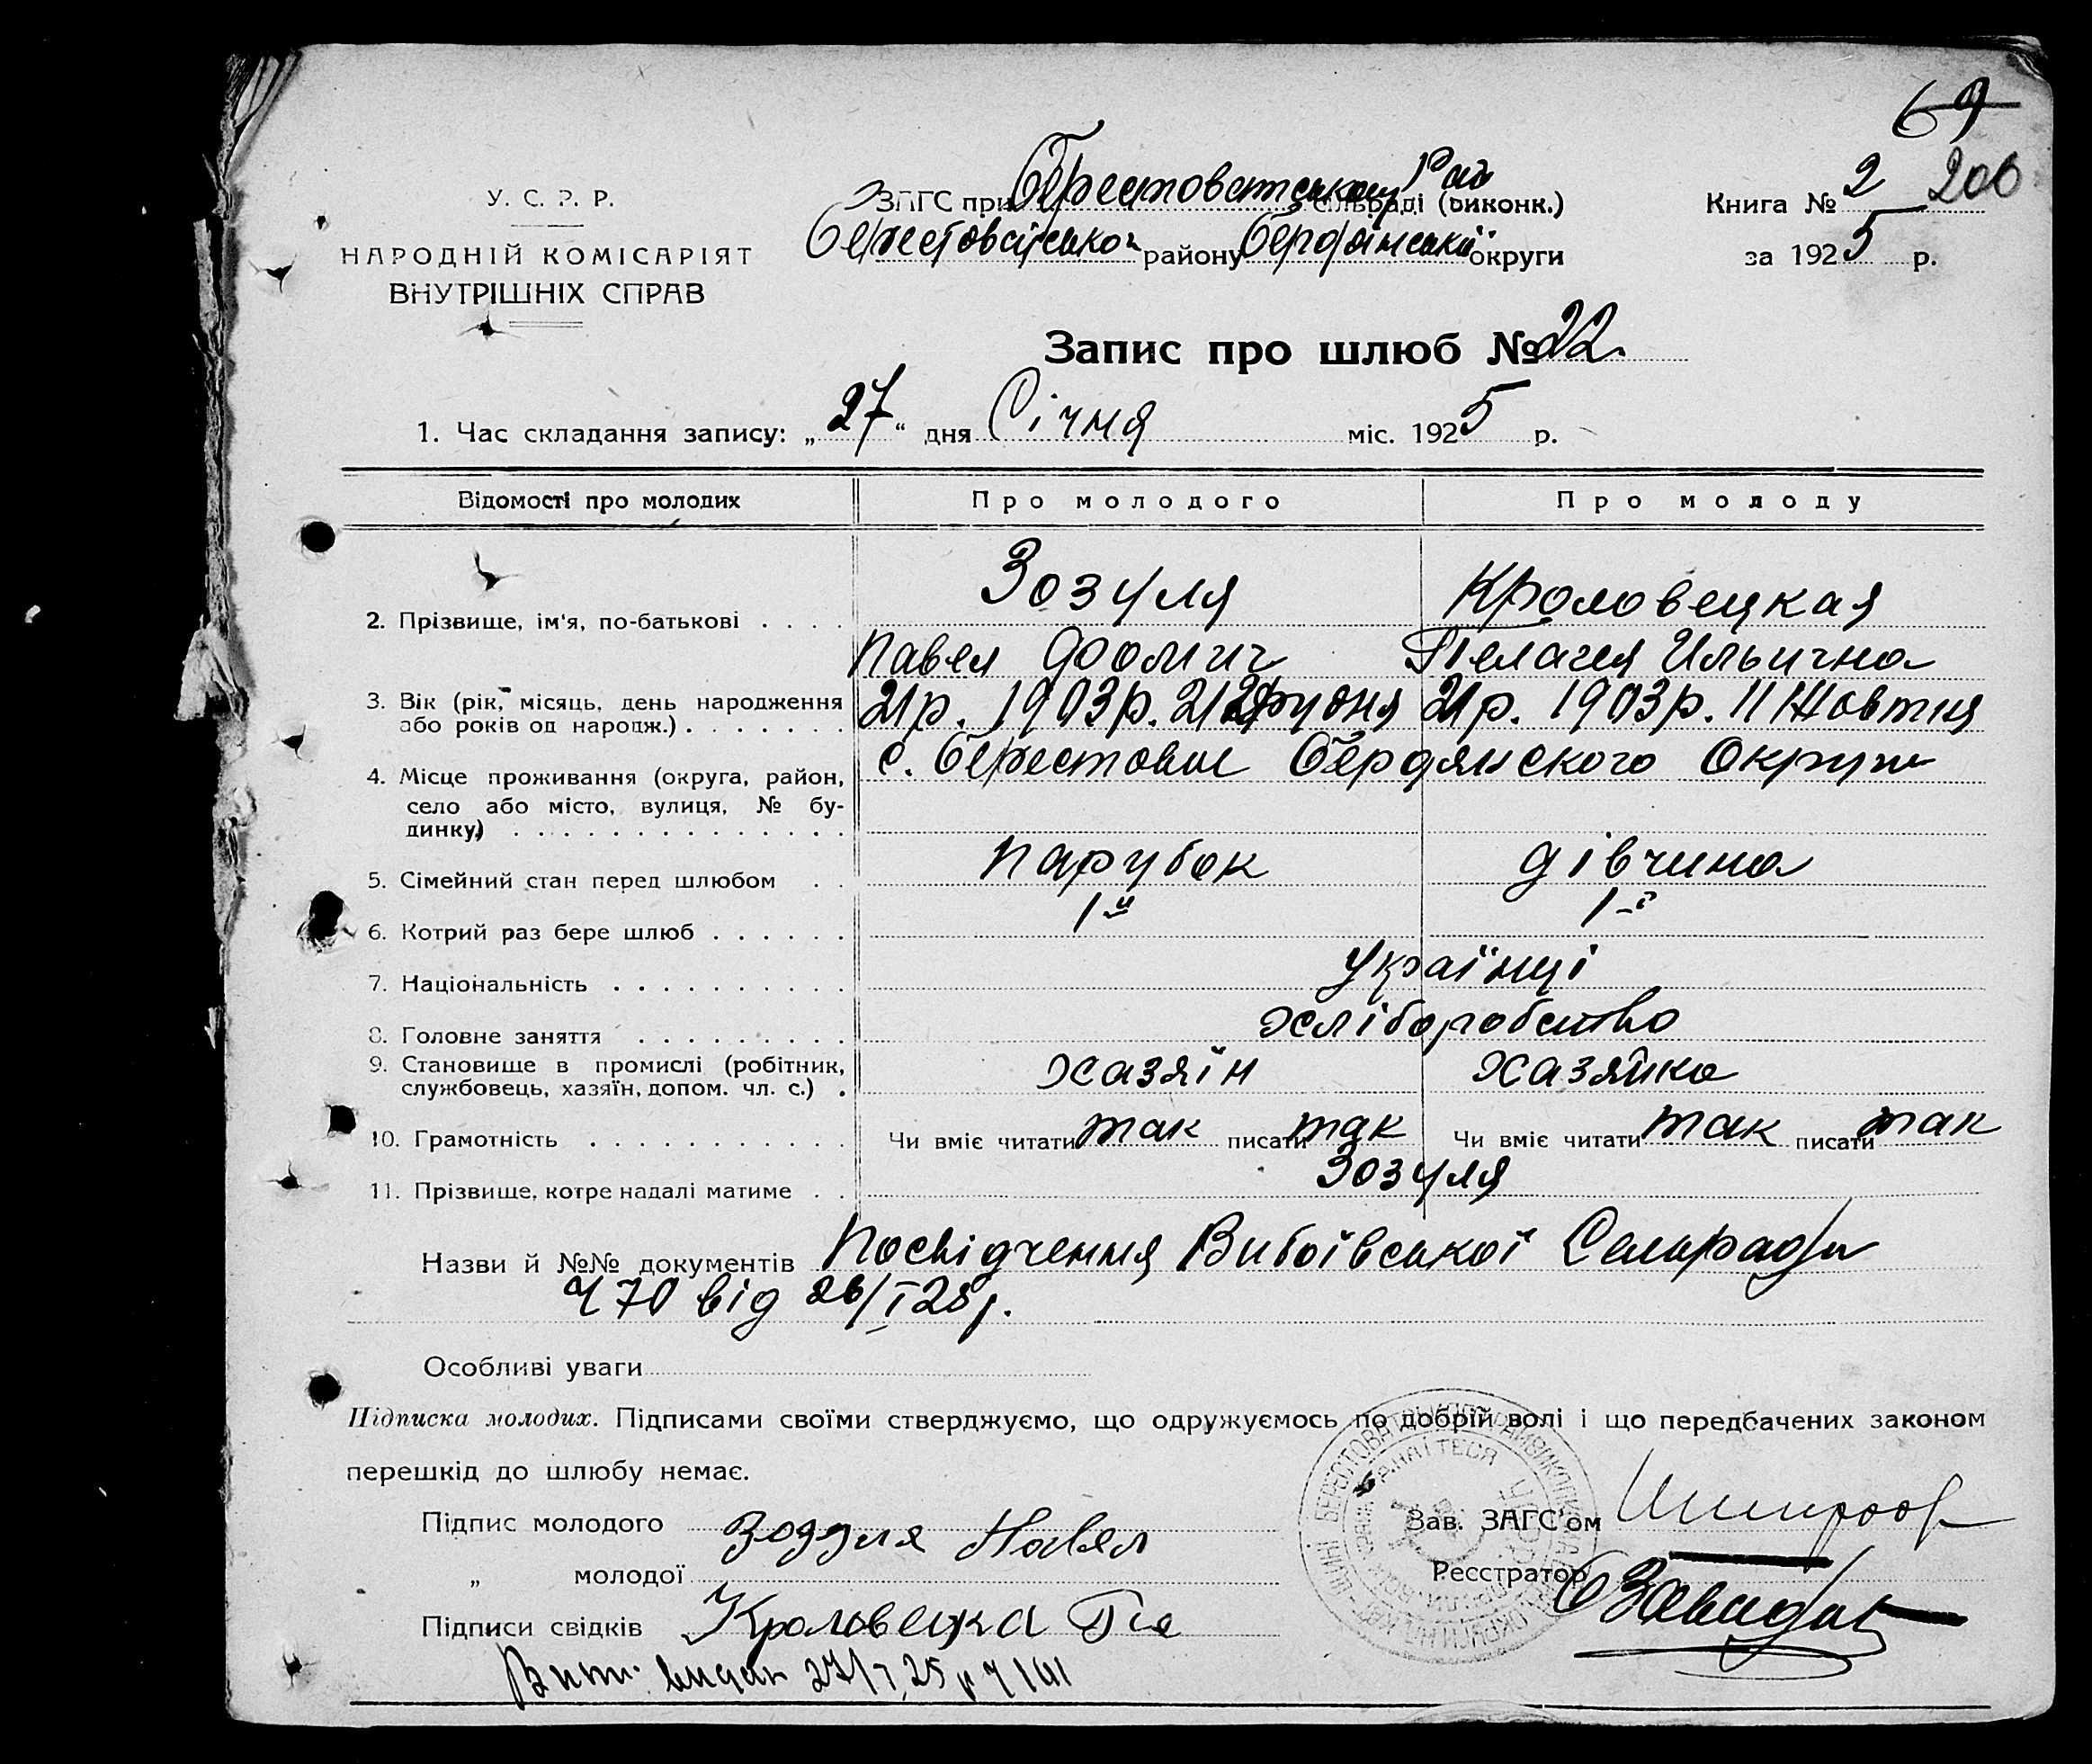 69
У. С. Р. Р.
НАРОДНІЙ КОМІСАРІЯТ
ВНУТРІШНІХ СПРАВ
ЗАГС при Берестоватському Рай сільраді (виконк.)
Берестоватської району Бердянської округи
Книга № 2 206
за 1925 р.
Запис про шлюб № 22.
1. Час складання запису: „27“ дня Січня міс. 1925 р.
Відомості про молодих Про молодого Про молоду
2. Прізвище, ім'я, по-батькові . . . . Зозуля Кроловецкая
Павел Фомич Пелагея Ильична
3. Вік (рік, місяць, день народження 21 р. 1903 р. Грудня 21 р. 1903 р. 11 Жовтня
або років од народж.) . . . . . . .
4. Місце проживання (округа, район, с. Берестовое Бердянского Округи
село або місто, вулиця, № бу-
динку) . . . . . . . . . . . . . .
5. Сімейний стан перед шлюбом . . парубок дівчина
6. Котрий раз бере шлюб . . . . . . 1й 1-ї
7. Національність . . . . . . . . . . українці
8. Головне заняття . . . . . . . . . хліборобство
9. Становище в промислі (робітник, хазяїн хазяйка
службовець, хазяїн, допом. чл. с.) .
10. Грамотність . . . . . . . . . . . Чи вміє читати так писати так Чи вміє читати так писати так
11. Прізвище, котре надалі матиме . . Зозуля
Назви й №№ документів Посвідчення Вибоївської Сельради
Ч 70 від 26/I 25 р.
Особливі уваги
Підписка молодих. Підписами своїми стверджуємо, що одружуємось по добрій волі і що передбачених законом
перешкід до шлюбу немає.
Підпис молодого Зозуля Павел
Зав. ЗАГС'ом
„ молодої
Реєстратор
Підписи свідків Кроловецка Пе
Вит. видан 27/I 25 р Ч 141